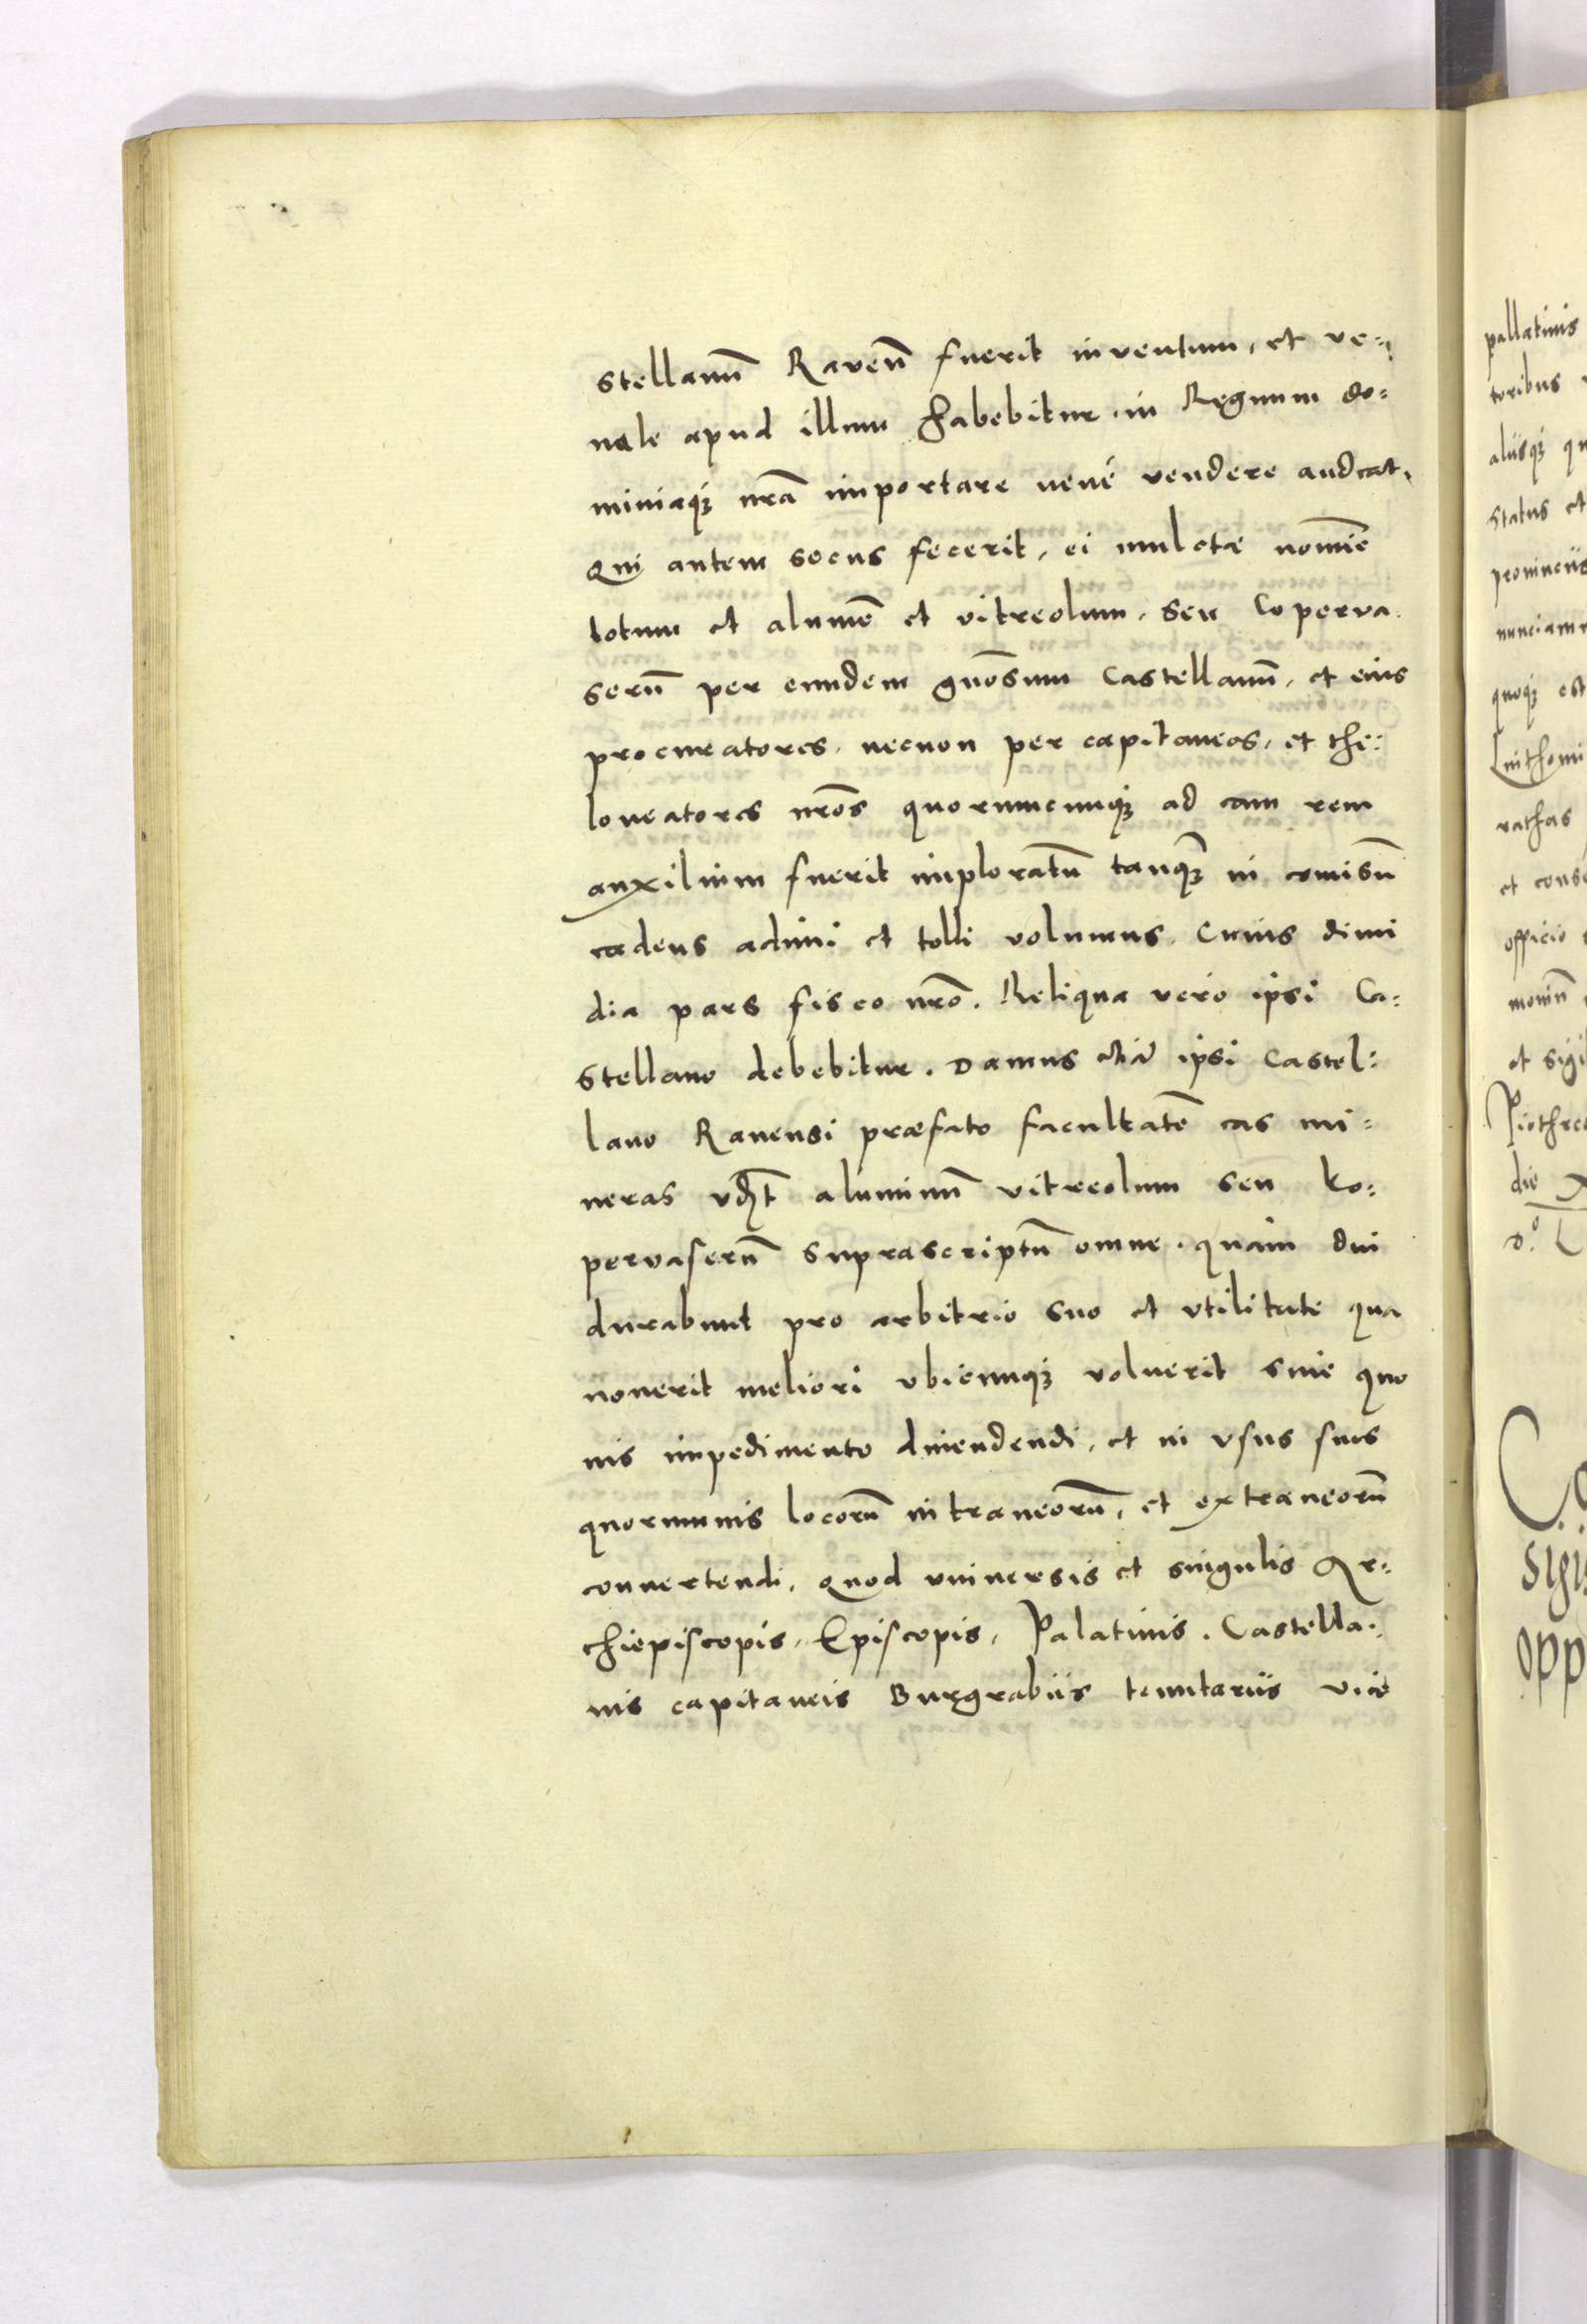 stellanū Ravenn̄ fuerit inventum, et ve=
nale apud illum habebitur in Regnum do=
miniaqꝫ nr̄a importare neue vendere audeat.
Qui autem secus fecerit, ei mulctæ nomīe
totum et alumē et vitreolum, seu Coperva
serū per eundem gn̄osum Castellanū, et eius
procuratores, necnon per capitaneos, et the=
loneatores nr̄os quorumcunqꝫ ad eam rem
auxilium fuerit imploratū tanqꝫ in comisū
cadens adimi et tolli volumus. Cuius dimi
dia pars fisco nr̄o. Reliqua vero ipsi Ca=
stellano debebitur. Damus etiā ipsi Castel=
lano Ravensi præfato facultatē eas mi=
neras vꝫt aluminū vitreolum seu ko=
pervaserū suprascriptū omne. quam diu
durabunt pro arbitrio suo et vtilitate qua
noverit meliori vbicunqꝫ voluerit sine quo
vis impedimento divendendi, et in vsus suos
quorumvis locorū intraneorū, et extraneorū
convertendi. Quod vniversis et singulis Ar=
chiepiscopis, Episcopis, Palatinis, Castella=
nis capitaneis Burgrabiis tenutariis vice
pallatinis
toribus
aliisqꝫ
status et
provinciis
quoqꝫ est
rathas
officio
die